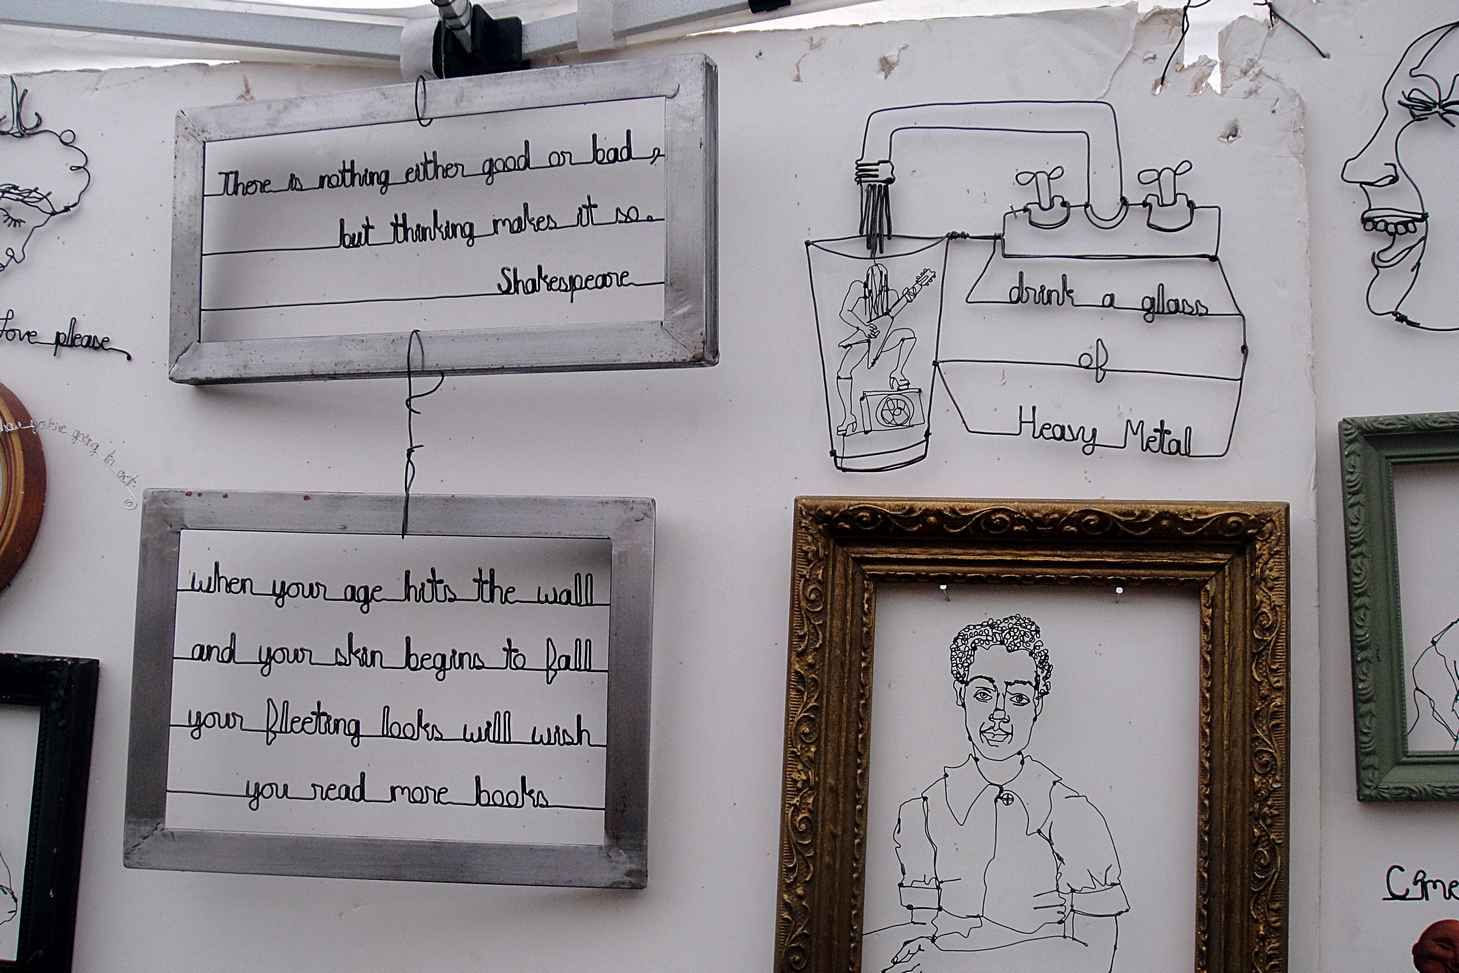 There is nothing either good or bad,
but thinking makes it so.
Shakespeare
love please
when your age hits the wall
and your skin begins to fall
your fleeting looks will wish
you read more books
drink a glass
of
Heavy Metal